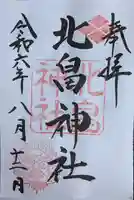 奉拝
北畠神社
令和六年八月十二日